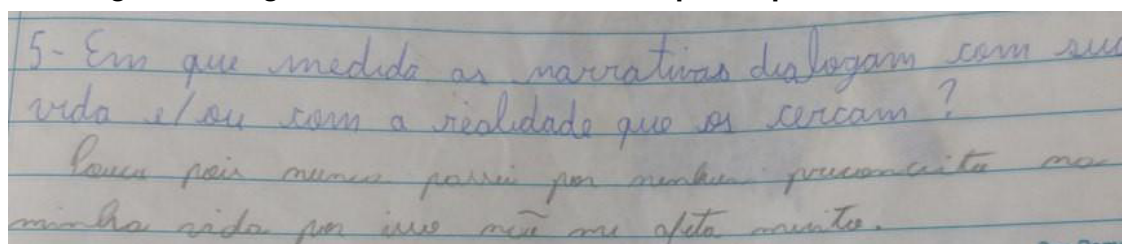 5- Em que medida as narrativas dialogam com sua
vida e/ou com a realidade que os cercam?
Pouca pois nunca passei por nenhum preconceito na
minha vida por isso não me afeta muito.